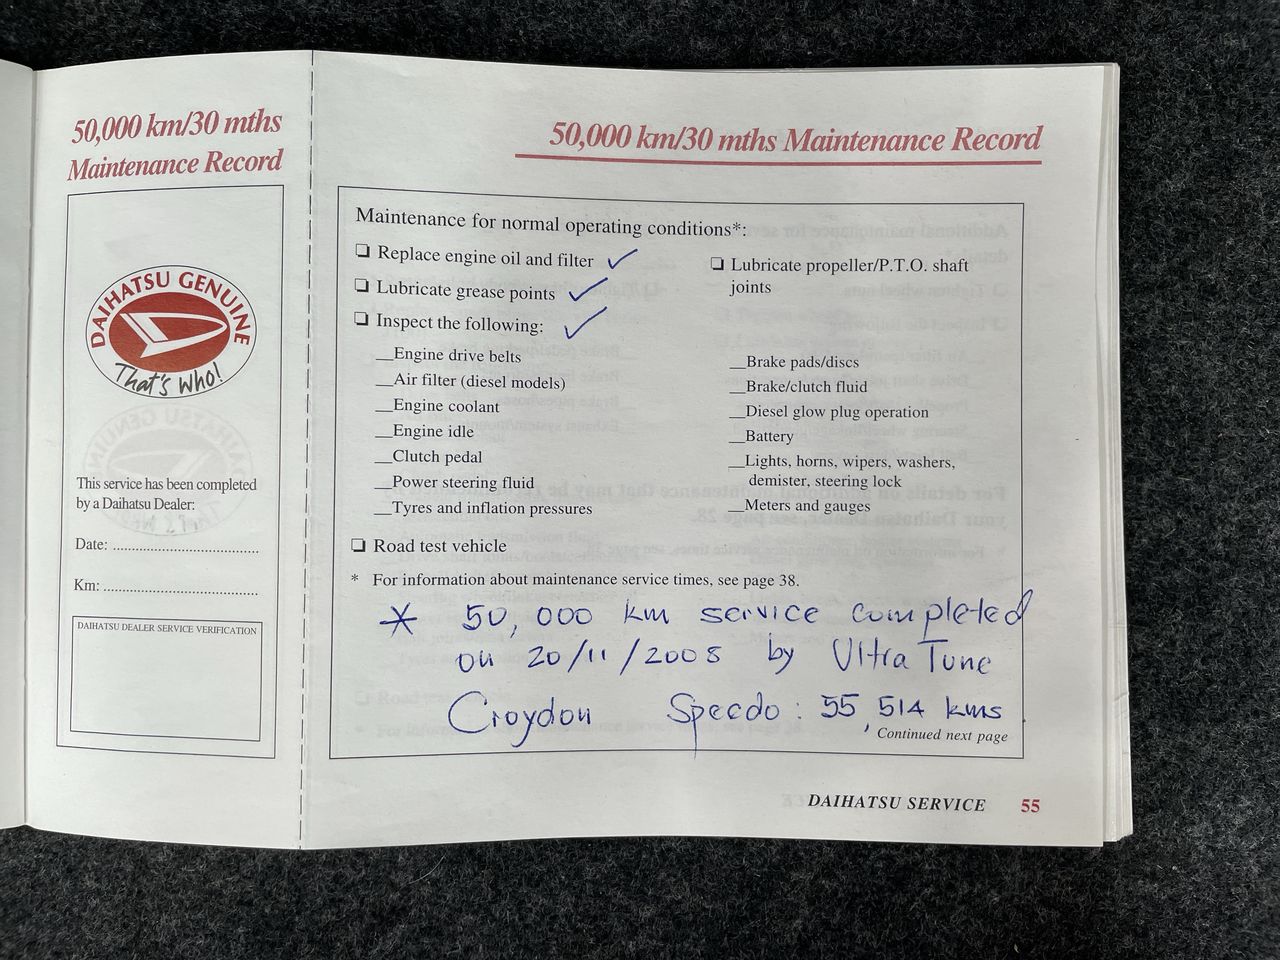 50,000 km/30 mths
Maintenance Record
DAIHATSU GENUINE
That's Who!
This service has been completed
by a Daihatsu Dealer:
Date: ........................................
Km: ..........................................
DAIHATSU DEALER SERVICE VERIFICATION
50,000 km/30 mths Maintenance Record
Maintenance for normal operating conditions*:
❏ Replace engine oil and filter ✓
❏ Lubricate grease points ✓
❏ Inspect the following: ✓
__Engine drive belts
__Air filter (diesel models)
__Engine coolant
__Engine idle
__Clutch pedal
__Power steering fluid
__Tyres and inflation pressures
❏ Lubricate propeller/P.T.O. shaft
joints
__Brake pads/discs
__Brake/clutch fluid
__Diesel glow plug operation
__Battery
__Lights, horns, wipers, washers,
demister, steering lock
__Meters and gauges
❏ Road test vehicle
* For information about maintenance service times, see page 38.
* 50,000 km service completed
on 20/11/2008 by Ultra Tune
Croydon Speedo: 55,514 kms
Continued next page
DAIHATSU SERVICE 55